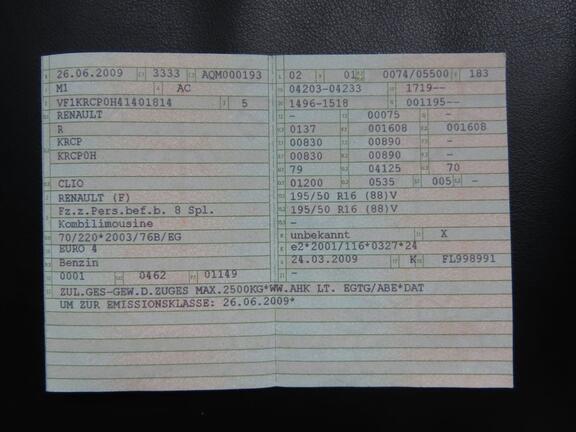 26.06.2009 3333 AQM000193
M1 AC
VF1KRCP0H41401814 5
RENAULT
R
KRCP
KRCP0H
CLIO
RENAULT (F)
Fz.z.Pers.bef.b. 8 Spl.
Kombilimousine
70/220*2003/76B/EG
EURO 4
Benzin
0001 0462 01149
02 01 0074/05500 183
04203-04233 1719--
1496-1518 001195--
- 00075 -
0137 001608 001608
00830 00890 -
00830 00890 -
79 04125 70
01200 0535 005 -
195/50 R16 (88)V
195/50 R16 (88)V
-
unbekannt X
e2*2001/116*0327*24
24.03.2009 K FL998991
-
ZUL.GES-GEW.D.ZUGES MAX.2500KG*WW.AHK LT. EGTG/ABE*DAT
UM ZUR EMISSIONSKLASSE: 26.06.2009*